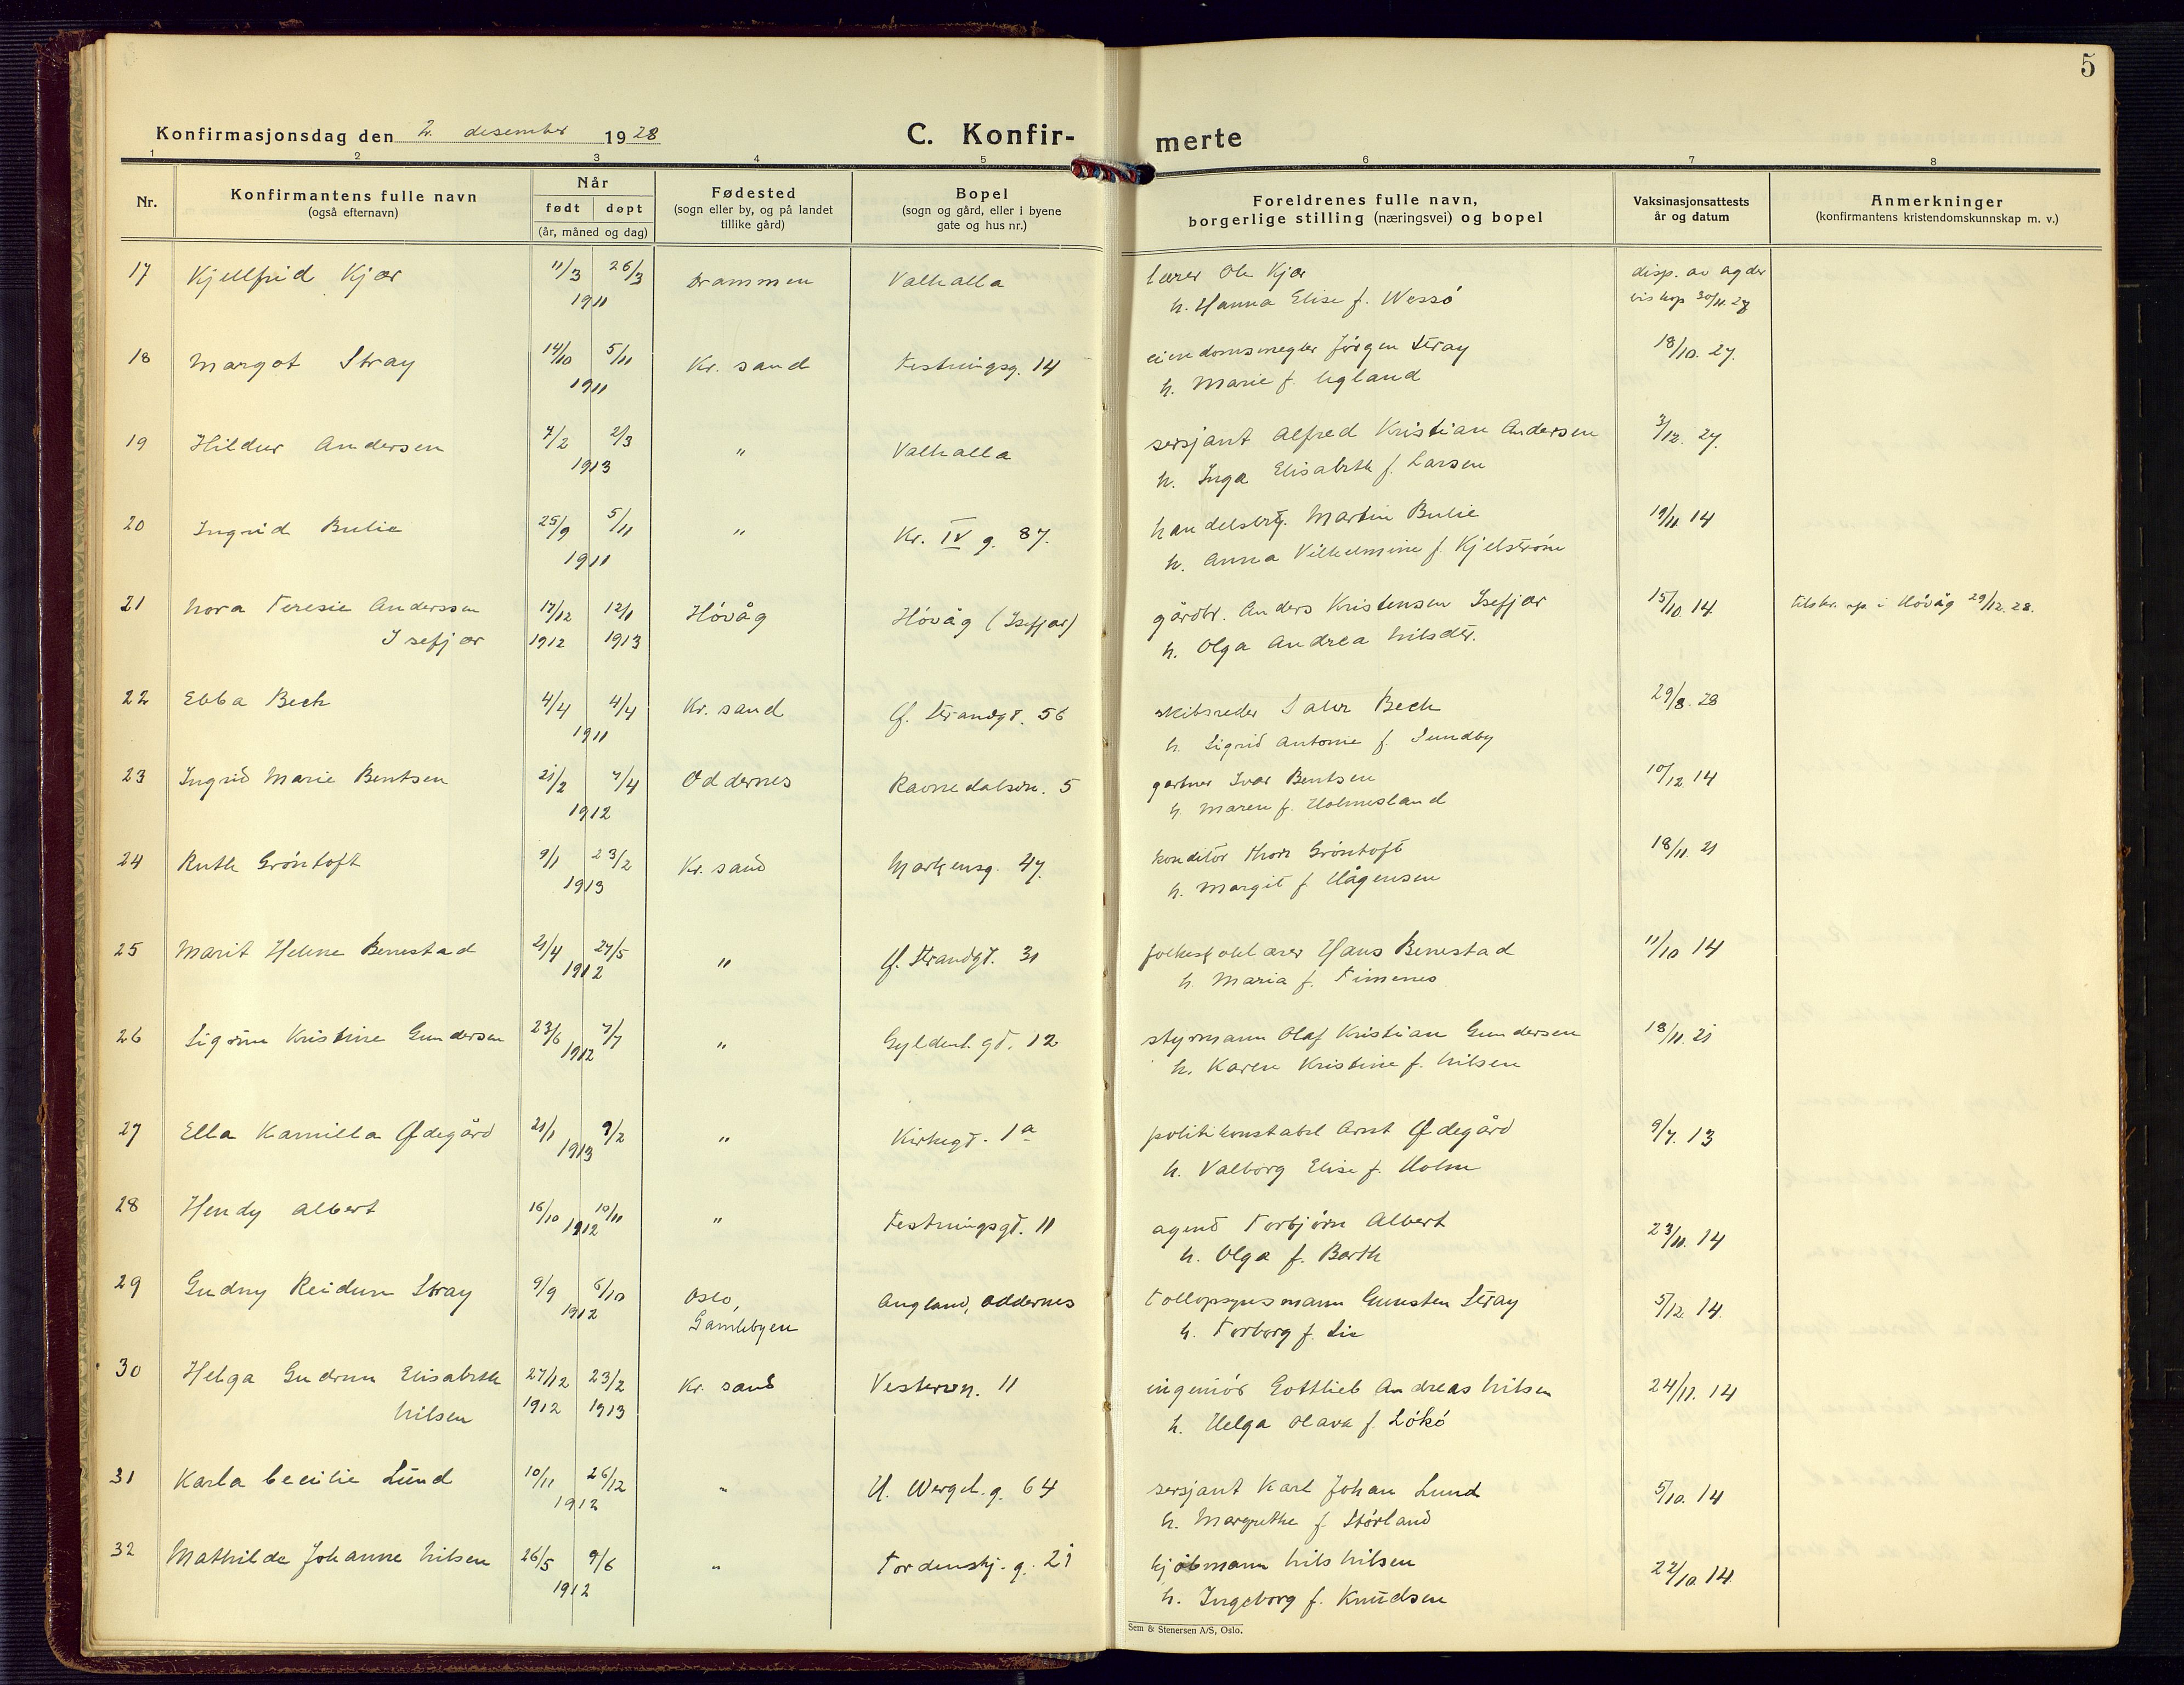 5
Konfirmasjonsdag den 2. desember 1928
C. Konfir-
merte
1 2 3 4 5 6 7 8
Nr.
Konfirmantens fulle navn
(også efternavn)
Når
født døpt
(år, måned og dag)
Fødested
(sogn eller by, og på landet
tillike gård)
Bopel
(sogn og gård, eller i byene
gate og hus nr.)
Foreldrenes fulle navn,
borgerlige stilling (næringsvei) og bopel
Vaksinasjonsattests
år og datum
Anmerkninger
(konfirmantens kristendomskunnskap m. v.)
17 Kjellfrid Kjær 11/3 26/3 Drammen Valhalla lærer Ole Kjær disp. av agder
1911 h. Hanna Elise f. Wessö biskop 30/11. 28
18 Margot Stray 14/10 5/11 Kr. sand Festningsg. 14 eiendomsmegler Jörgen Stray 18/10. 27.
1911 h. Marie f. Ugland
19 Hildur Andersen 7/2 2/3 " Valhalla sersjant Alfred Kristian Andersen 3/12. 27.
1913 h. Inga Elisabeth f. Larsen
20 Ingrid Bulie 25/9 5/11 " Kr. IV g. 87. handelsbetj. Martin Bulie 19/11. 14
1911 h. Anna Vilhelmine f. Kjelström
21 Nora Teresie Anderssen 17/12 12/1 Hövåg Hövåg (Isefjær) gårdbr. Anders Kristensen Isefjær 15/10. 14 tilskr. sp. i Hövåg 29/12. 28.
Isefjær 1912 1913 h. Olga Andrea Nilsdtr.
22 Ebba Bech 4/4 4/4 Kr. sand Ø. Strandgt. 56 skibsreder Bech 29/8. 28
1911 h. Sigrid Antonie f. Sundby
23 Ingrid Marie Bentsen 21/2 7/4 Oddernes Ravnedalsvn. 5 gartner Ivar Bentsen 10/12. 14
1912 h. Maren f. Holmesland
24 Ruth Gröntoft 9/1 23/2 Kr. sand Markensg. 47. konditor Thor Gröntoft 18/11. 21
1913 h. Margit f. Hågensen
25 Marit Helene Benestad 21/4 27/5 " Ø. Strandgt. 31 folkeskolelærer Hans Benestad 11/10 14
1912 h. Maria f. Timenes
26 Sigrun Kristine Gundersen 23/6 7/7 " Gyldenl. gt. 12 styrmann Olaf Kristian Gundersen 18/11. 21
1912 h. Karen Kristine f. Nilsen
27 Ella Kamilla Ødegård 21/1 9/2 " Kirkegt. 1a politikonstabel Arnt Ødegård 9/7. 13
1913 h. Valborg Elise f. Holm
28 Hendy Albert 16/10 10/11 " Festningsgt. 11 agent Torbjörn Albert 23/11. 14
1912 h. Olga f. Barth
29 Gudny Reidun Stray 9/9 6/10 Oslo, Augland, Oddernes tollopsynsmann Gunsten Stray 5/12. 14.
1912 Gamlebyen h. Torborg f. Lie
30 Helga Gudrun Elisabeth 27/12 23/2 Kr. sand Vestervn. 11 ingeniör Gottlieb Andreas Nilsen 24/11. 14
Nilsen 1912 1913 h. Helga Olava f. Lökö
31 Karla Cecilie Lund 10/11 26/12 " H. Wergel. g. 64 sersjant Karl Johan Lund 5/10. 14
1912 h. Margrethe f. Störland
32 Mathilde Johanne Nilsen 26/5 9/6 " Tordenskj. g. 21 kjöbmann Nils Nilsen 22/10. 14.
1912 h. Ingeborg f. Knudsen
Sem & Stenersen A/S, Oslo.